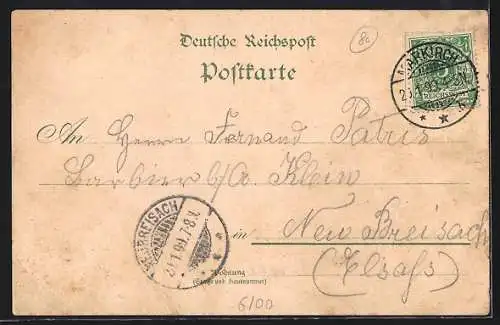 8a
Deutsche Reichspost
Postkarte
MARKIRCH
An Herrn Fernand Patris
Barbier b/A. Klein
NEUBREISACH
24.1.99.7-8V.
in New Breisach
(Elsaß)
Wohnung
(Straße und Hausnummer)
6/00